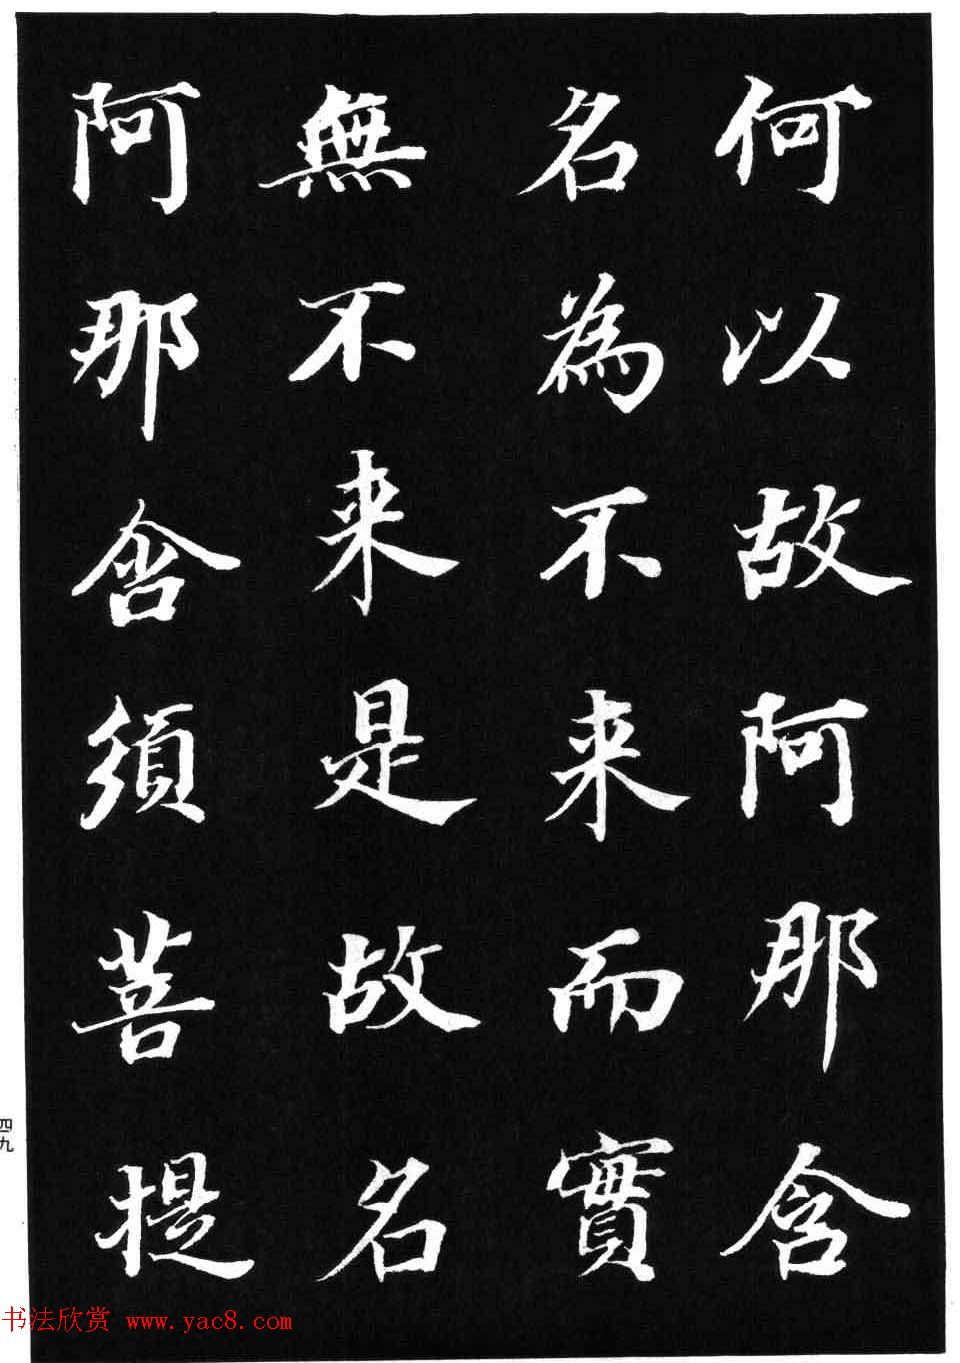 何以故阿那含
名為不来而實
無不来是故名
阿那含須菩提
四九
书法欣赏 www.yac8.com